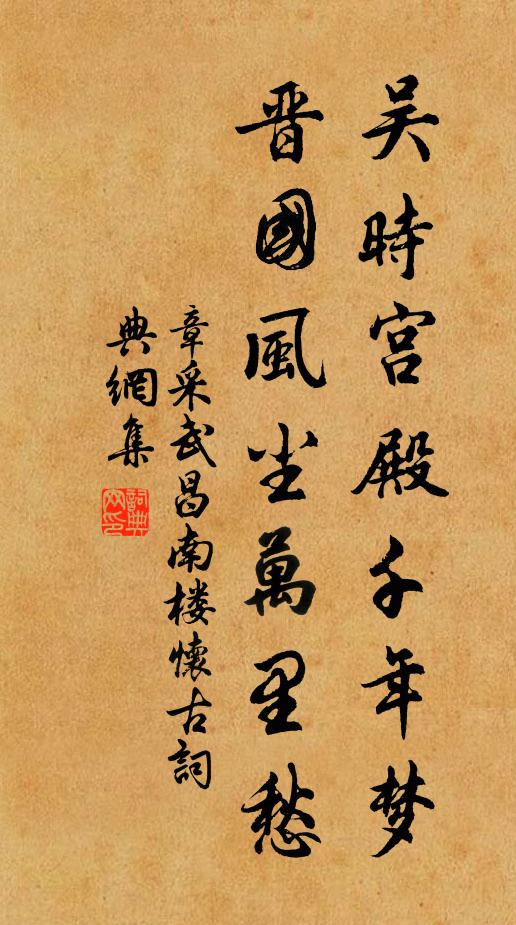 吴時宫殿千年梦
晋國風尘萬里愁
章采武昌南楼懷古詞
典網集
詞典网印